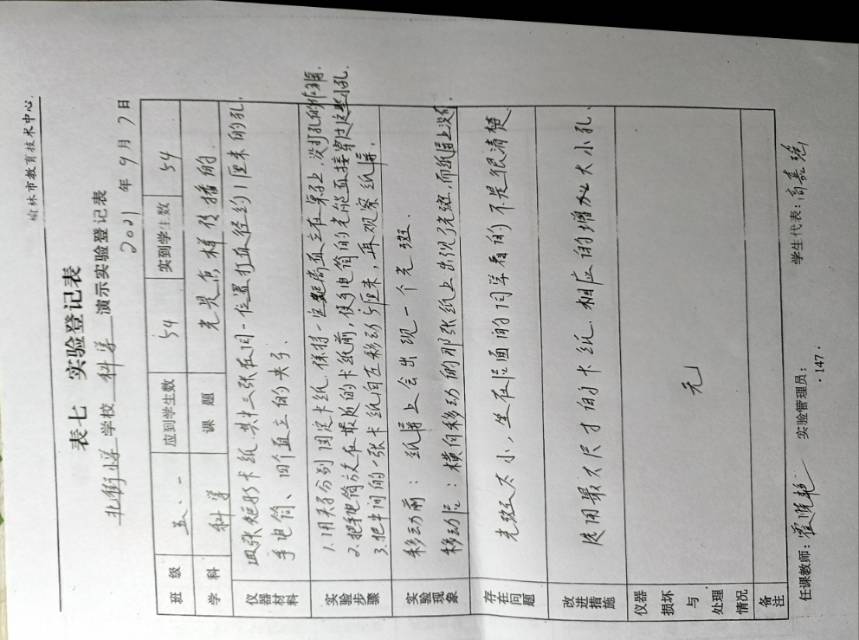 榆林市教育技术中心
表七 实验登记表
北街小学 学校 科学 演示实验登记表 2021 年 9 月 7 日
班级 五.一 应到学生数 54 实到学生数 54
学科 科学 课题 光是怎样传播的
仪器材料 四张矩形卡纸、其中三张在同一位置打直径约1厘米的孔、
手电筒、四个直立的夹子.
实验步骤 1.用夹子分别固定卡纸,保持一定距离直立在桌子上,没打孔的作纸屏.
2.把手电筒放在最近的卡纸前,使手电筒的光能直接穿过这些小孔.
3.把中间的一张卡纸向左移动5厘米,再观察纸屏.
实验现象 移动前:纸屏上会出现一个光斑.
移动后:横向移动的那张纸上出现了光斑,而纸屏上没有.
存在问题 光斑太小,坐在后面的同学看的不是很清楚.
改进措施 使用最大尺寸的卡纸.相应的增加大小孔.
仪器损坏与处理情况 无
备注
任课教师: 实验管理员: 学生代表:
·147·